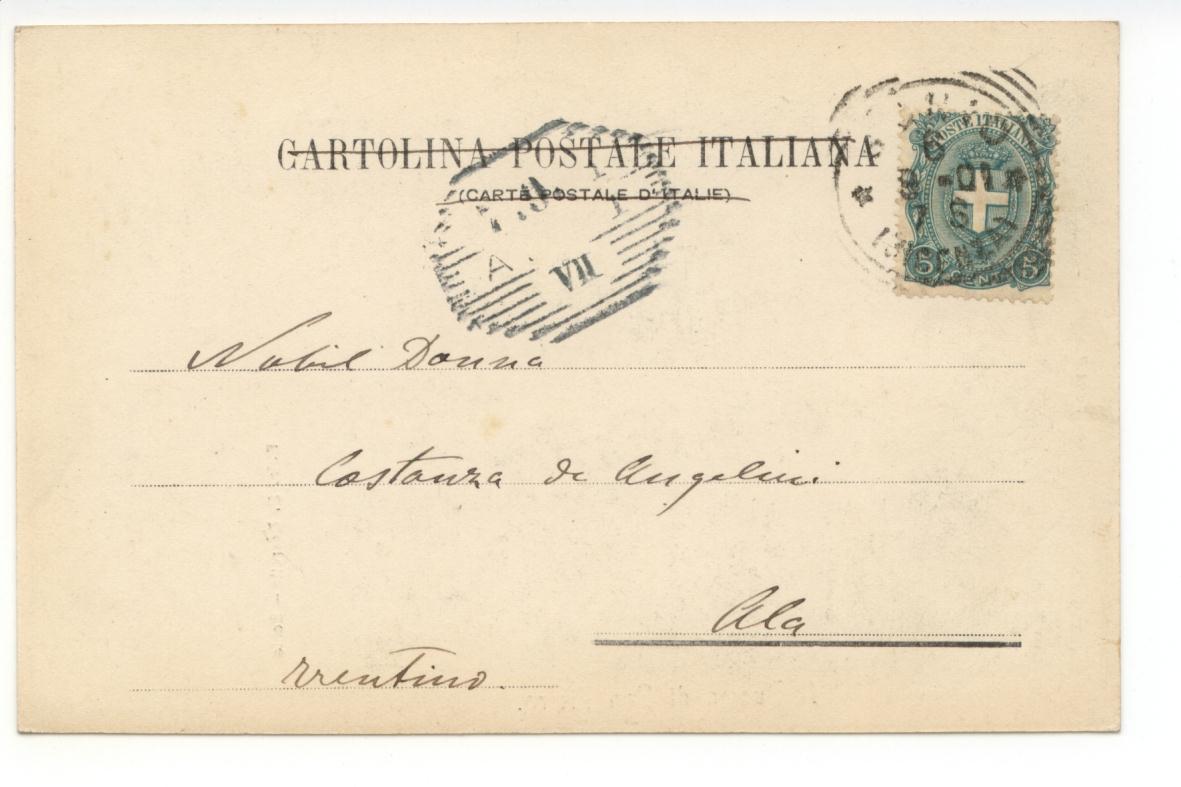 CARTOLINA POSTALE ITALIANA
(CARTE POSTALE D'ITALIE)
POSTE ITALIANE
5 5
VII
Nobil Donna
Costanza de Angelini
Ala
Trentino.